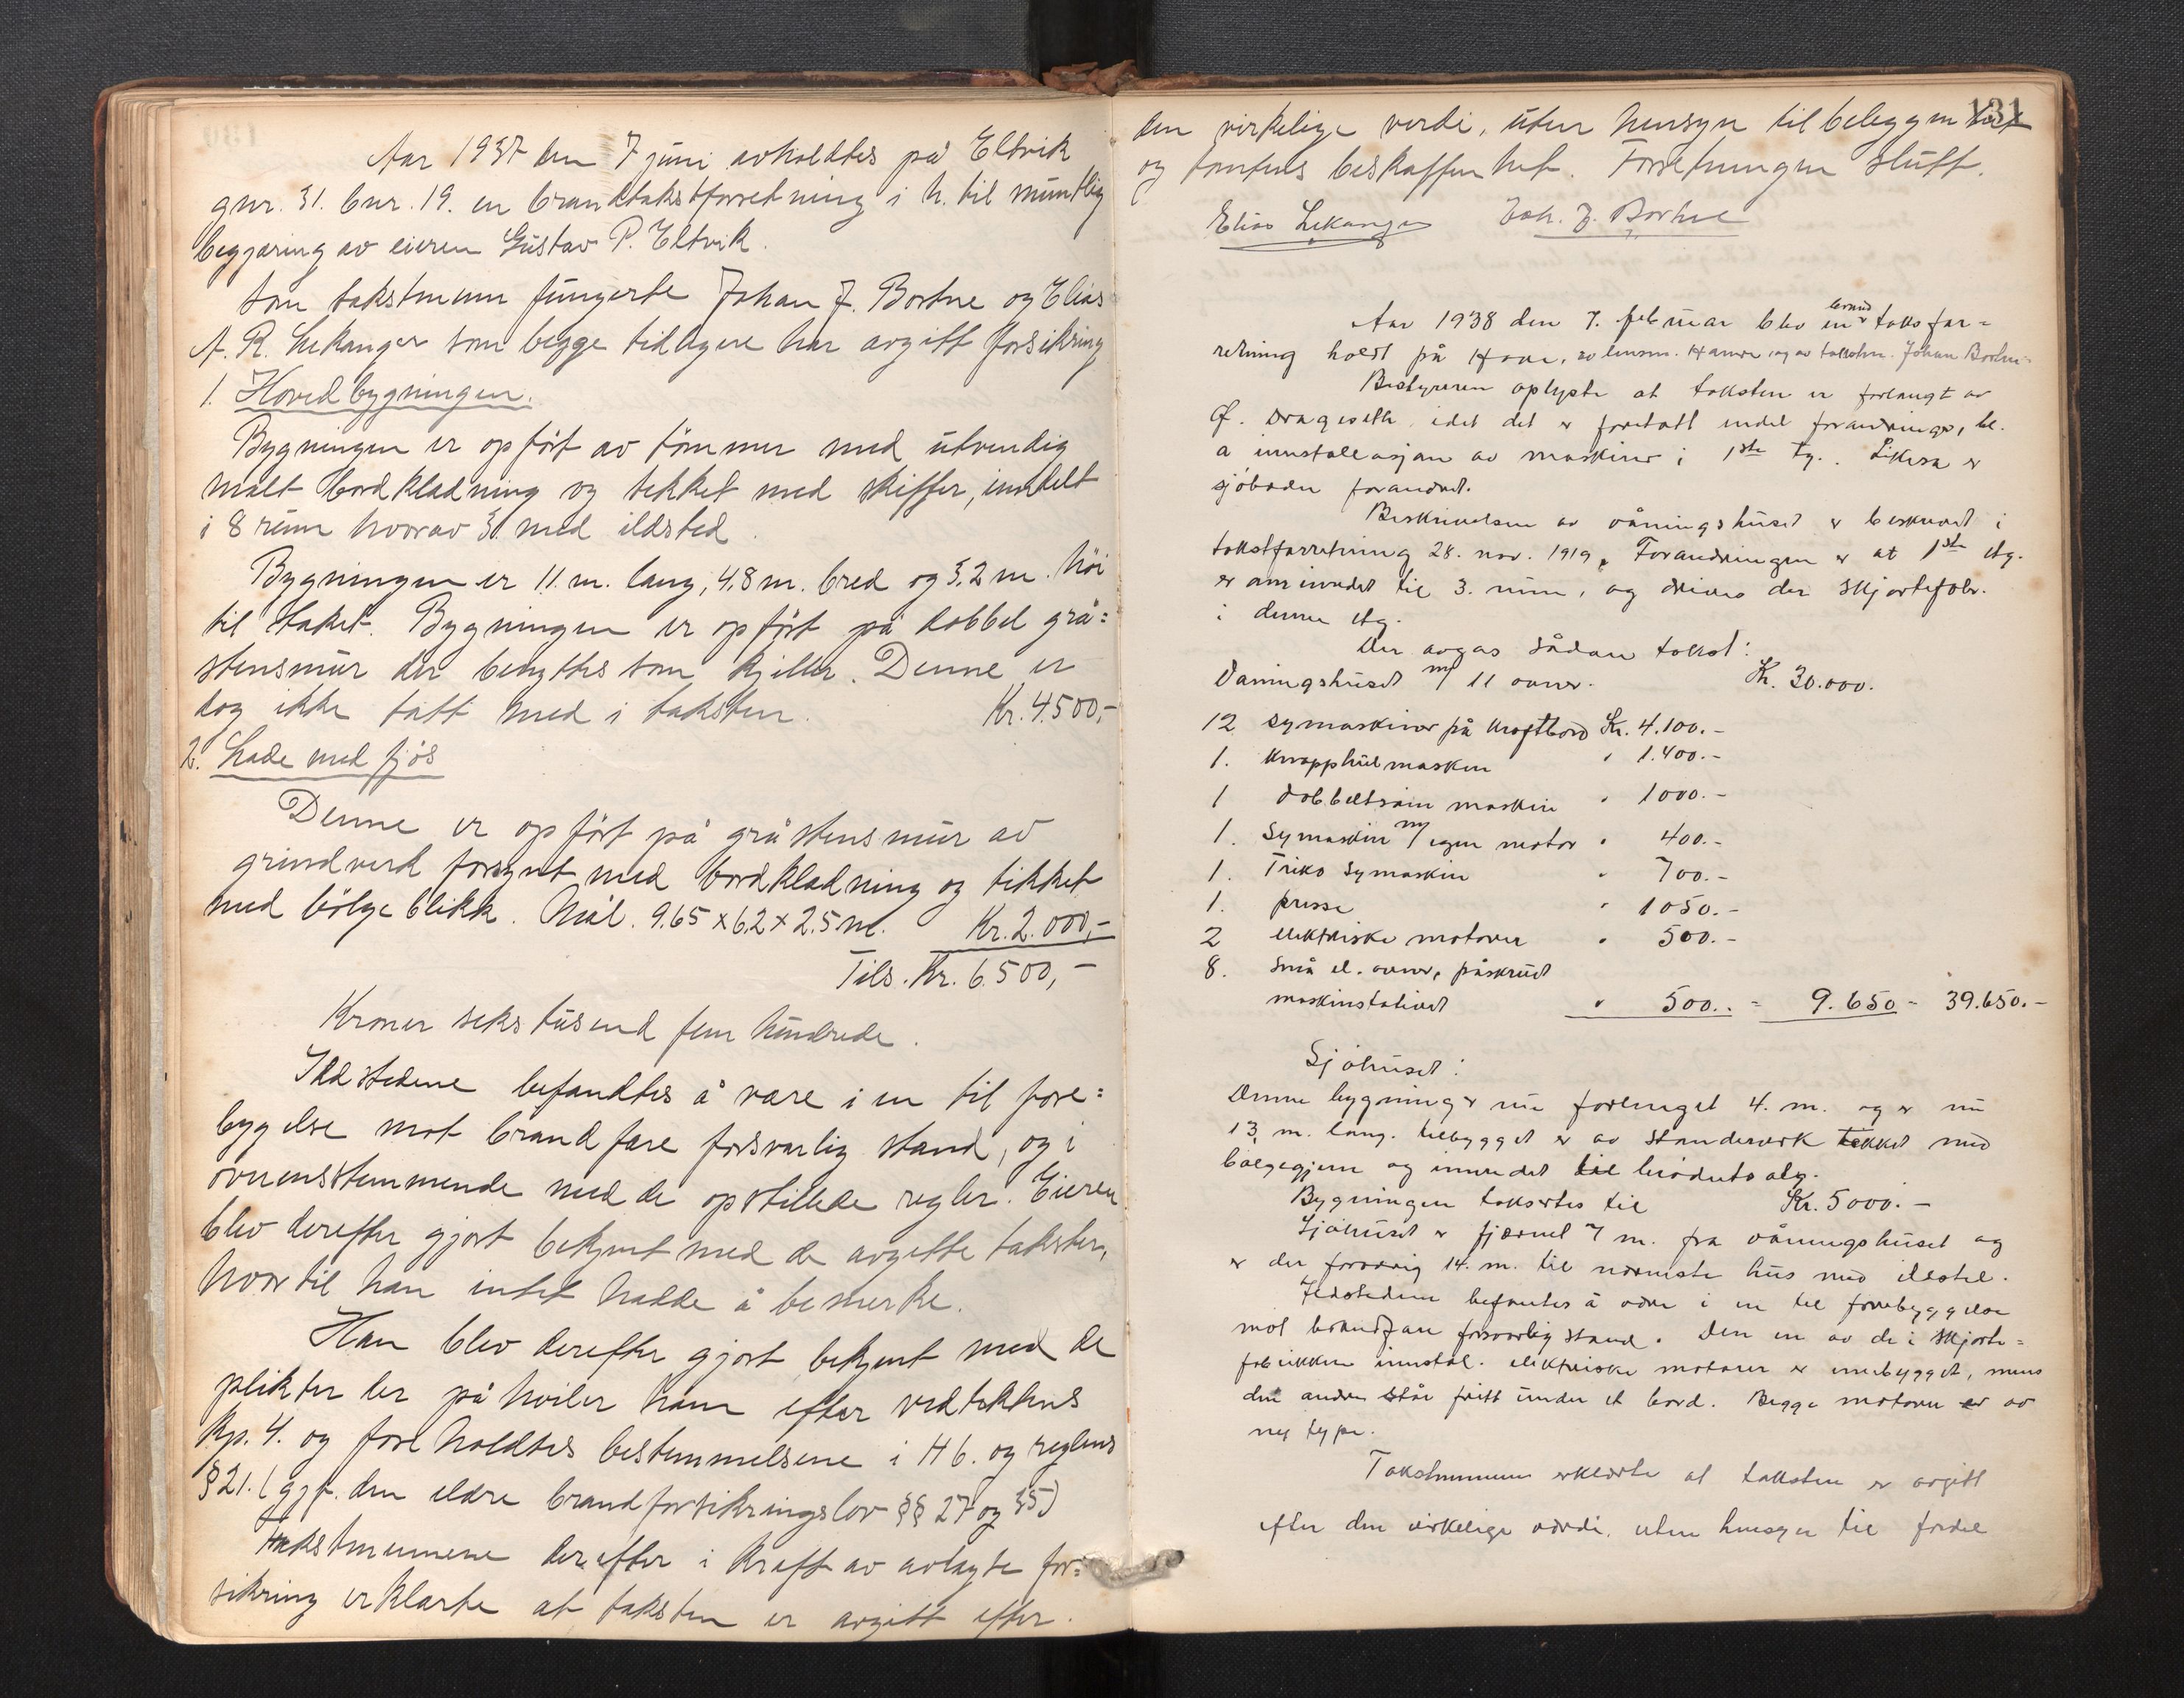 Aar 1937 den 7 juni avholdtes på Eltvik
gnr. 31. bnr. 19. en brandtakstforretning i h. til muntlig
begjæring av eieren Gustav P. Eltvik.
Som takstmenn fungerte Johan J. Bortne og Elias
A. R. Lekanger som begge tidligere har avgitt forsikring
1. Hovedbygningen.
Bygningen er opført av tømmer med utvendig
malt bordkledning og tekket med skiffer, inndelt
i 8 rum hvorav 3 med ildsted.
Bygningen er 11. m. lang, 4,8 m. bred og 3,2 m. høi
til taket. Bygningen er opført på dobbel grå=
stensmur der benyttes som kjeller. Denne er
dog ikke tatt med i taksten. Kr. 4500,-
2. Lade med fjøs
Denne er opført på gråstensmur av
grindverk forsynt med bordkledning og tekket
med bølgeblikk. Mål. 9.65 x 6.2 x 2.5 m. Kr. 2.000,-
Tils. Kr. 6.500,-
Kroner seks tusend fem hundrede.
Ildstedene befandtes å være i en til fore=
bygelse mot brandfare forsvarlig stand, og i
overensstemmende med de opstillede regler. Eieren
blev derefter gjort bekjent med de avgitte takster,
hvortil han intet hadde å bemerke.
Han blev derefter gjort bekjent med de
plikter der påhviler ham efter vedtektens
kp. 4. og foreholdtes bestemmelsene i H 6. og reglens
§ 21. (gjf. den eldre brandforsikringslov §§ 27 og 35)
Takstmennene derefter i kraft av avlagte for=
sikring erklærte at taksten er avgitt efter
131
den virkelige verdi, uten hensyn til beliggenhet
og tomtens beskaffenhet. Forretningen slutt.
Elias Lekanger Joh. J. Bortne
Aar 1938 den 7. februar blev en brand takstfor=
retning holdt på Hove, av lensm. Hamre og av takstm. Johan Bortne
Bestyreren oplyste at taksten er forlangt av
Drageseth, idet det er foretatt endel forandringer, bl.
a innstallasjon av maskiner i 1ste etg. Likesa er
sjøboden forandret.
Beskrivelsen av våningshuset er beskrevet i
takstforretning 28. nov. 1919. Forandringen er at 1ste etg.
er ominnredet til 3. rum, og drives der skjortefabr.
i denne etg.
Der avgas sådan takst:
Våningshuset m/ 11 ovner. Kr. 30.000.
12 symaskiner på kraftbord Kr. 4.100.-
1. knapphulmaskin " 1.400.-
1 dobbeltsøm maskin " 1000.-
1. Symaskin m/ egen motor " 400.-
1. Triko Symaskin " 700.-
1. presse " 1050.-
2 elektriske motorer " 500.-
8. små el. ovner, påskrudt
maskinstativet " 500.. = 9.650 - 39.650.-
Sjøhuset:
Denne bygning er nu forlenget 4. m. og er nu
13, m. lang. tilbygget er av standerverk tekket med
bølgegjern og innredet til brødutsalg.
Bygningen taksertes til Kr. 5000.-
Sjøhuset er fjernet 7 m. fra våningshuset og
er der forøvrig 14. m. til nærmeste hus med ildsted.
Ildstedene befantes å være i en til forebyggelse
mot brandfare forsvarlig stand. Den en av de i skjorte=
fabrikken innstal. elektriske motorer er innebygget, mens
den andre står fritt under et bord. Begge motorer er av
ny type.
Takstmennene erklærte at taksten er avgitt
efter den virkelige verdi, uten hensyn til fordel